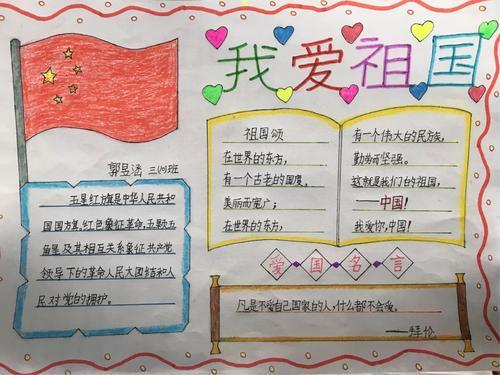 我爱祖国
郭昱涵 三(4)班
五星红旗是中华人民共和
国国旗。红色象征革命,五颗五
角星及其相互关系象征共产党
领导下的革命人民大团结和人
民对党的拥护。
祖国颂
在世界的东方,
有一个古老的国度,
美丽而宽广;
在世界的东方,
有一个伟大的民族,
勤劳而坚强。
这就是我们的祖国,
——中国!
我爱你,中国!
爱国名言
凡是不爱自己国家的人,什么都不会爱。
——拜伦